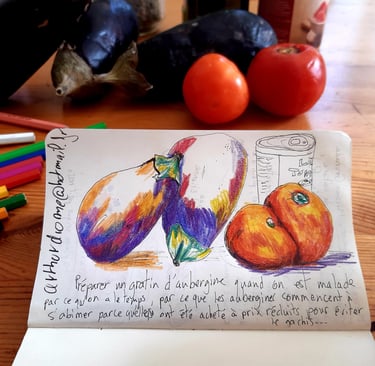 arthurdiome@hotmail.fr
Préparer un gratin d'aubergine quand on est malade
par ce qu'on a le temps, par ce que les aubergines commencent à
s'abimer parce quelles ont été acheté à prix réduits pour éviter
le gachis...